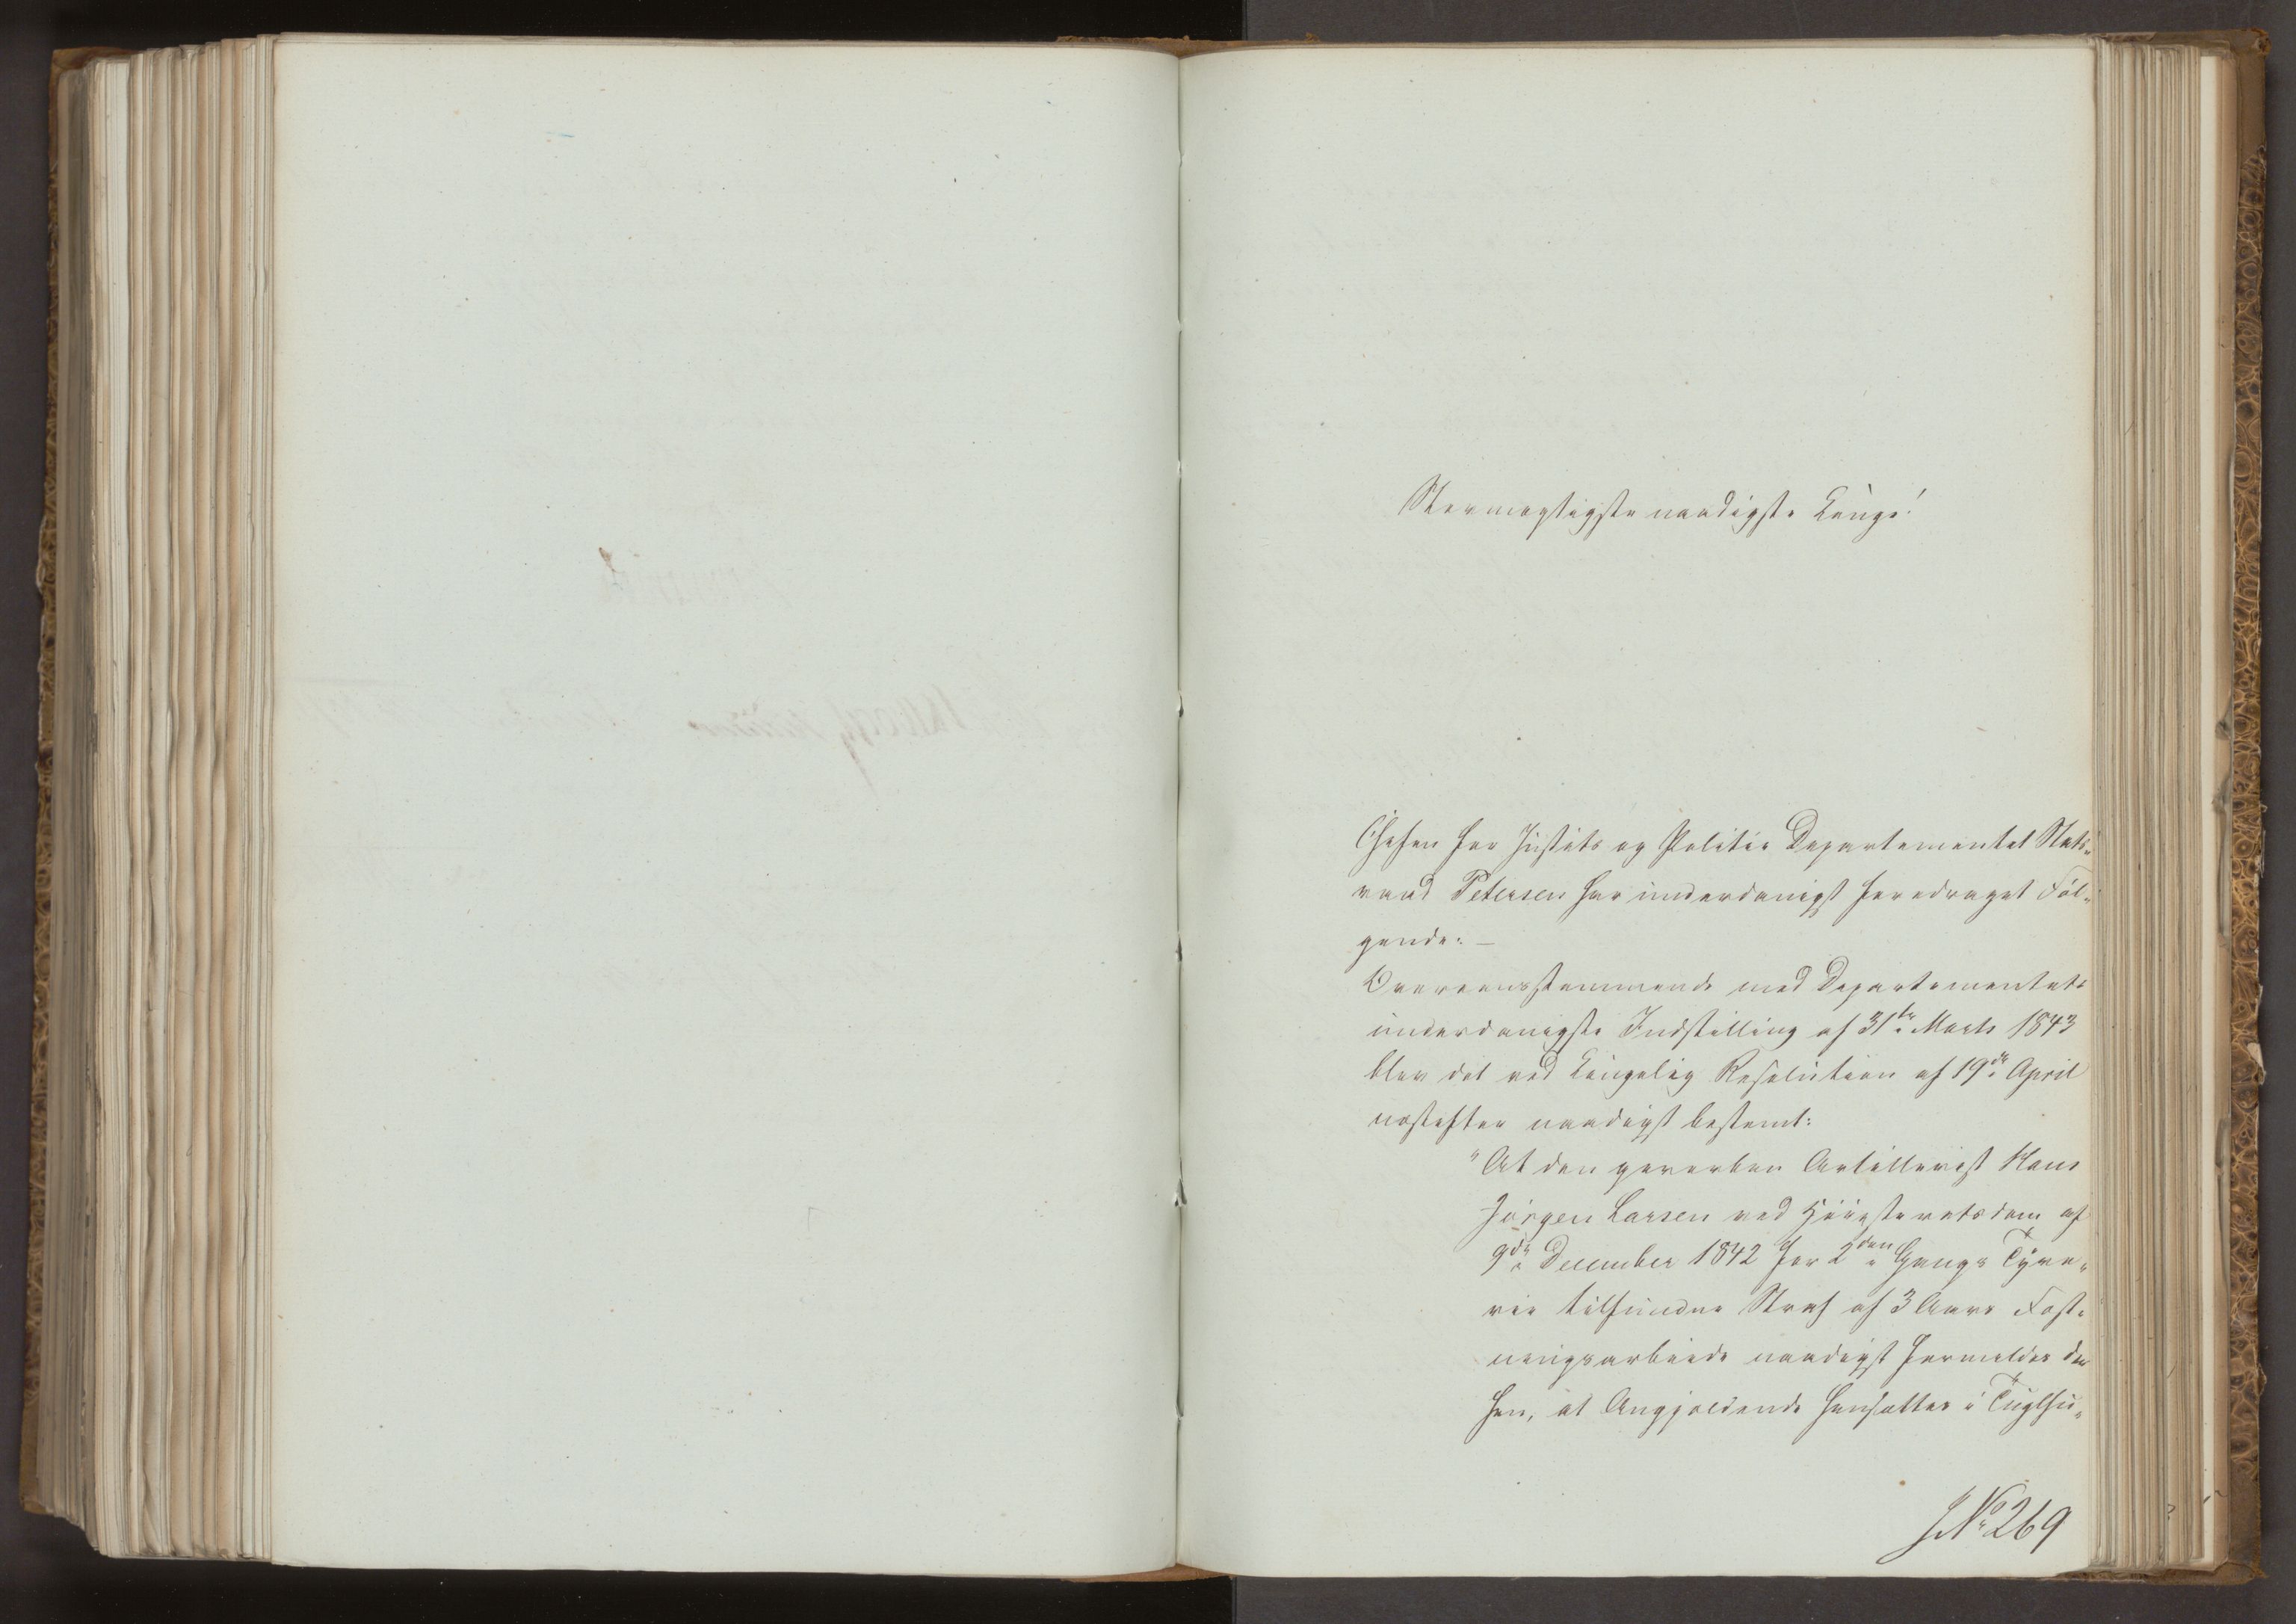 Stormægtigste naadigste Konge!
Chefen for Justits og Politie Departementet Stats„
raad Petersen har underdanigst foredraget Föl„
gende: —
Overeensstemmende med Departementets
underdanigste Indstilling af 31te Marts 1843
blev det ved Kongelig Resolution af 19de April
næstefter naadigst bestemt:
"At den hvervben Artillerist Hans
Jörgen Larsen ved Höiesteretsdom af
9de December 1842 for 2den Gangs Tyve„
rie tilfundne Straf af 3 Aars Fæst„
ningsarbeide naadigst formildes der
hen, at Angjældende hensættes i Tugthu„
J No 269